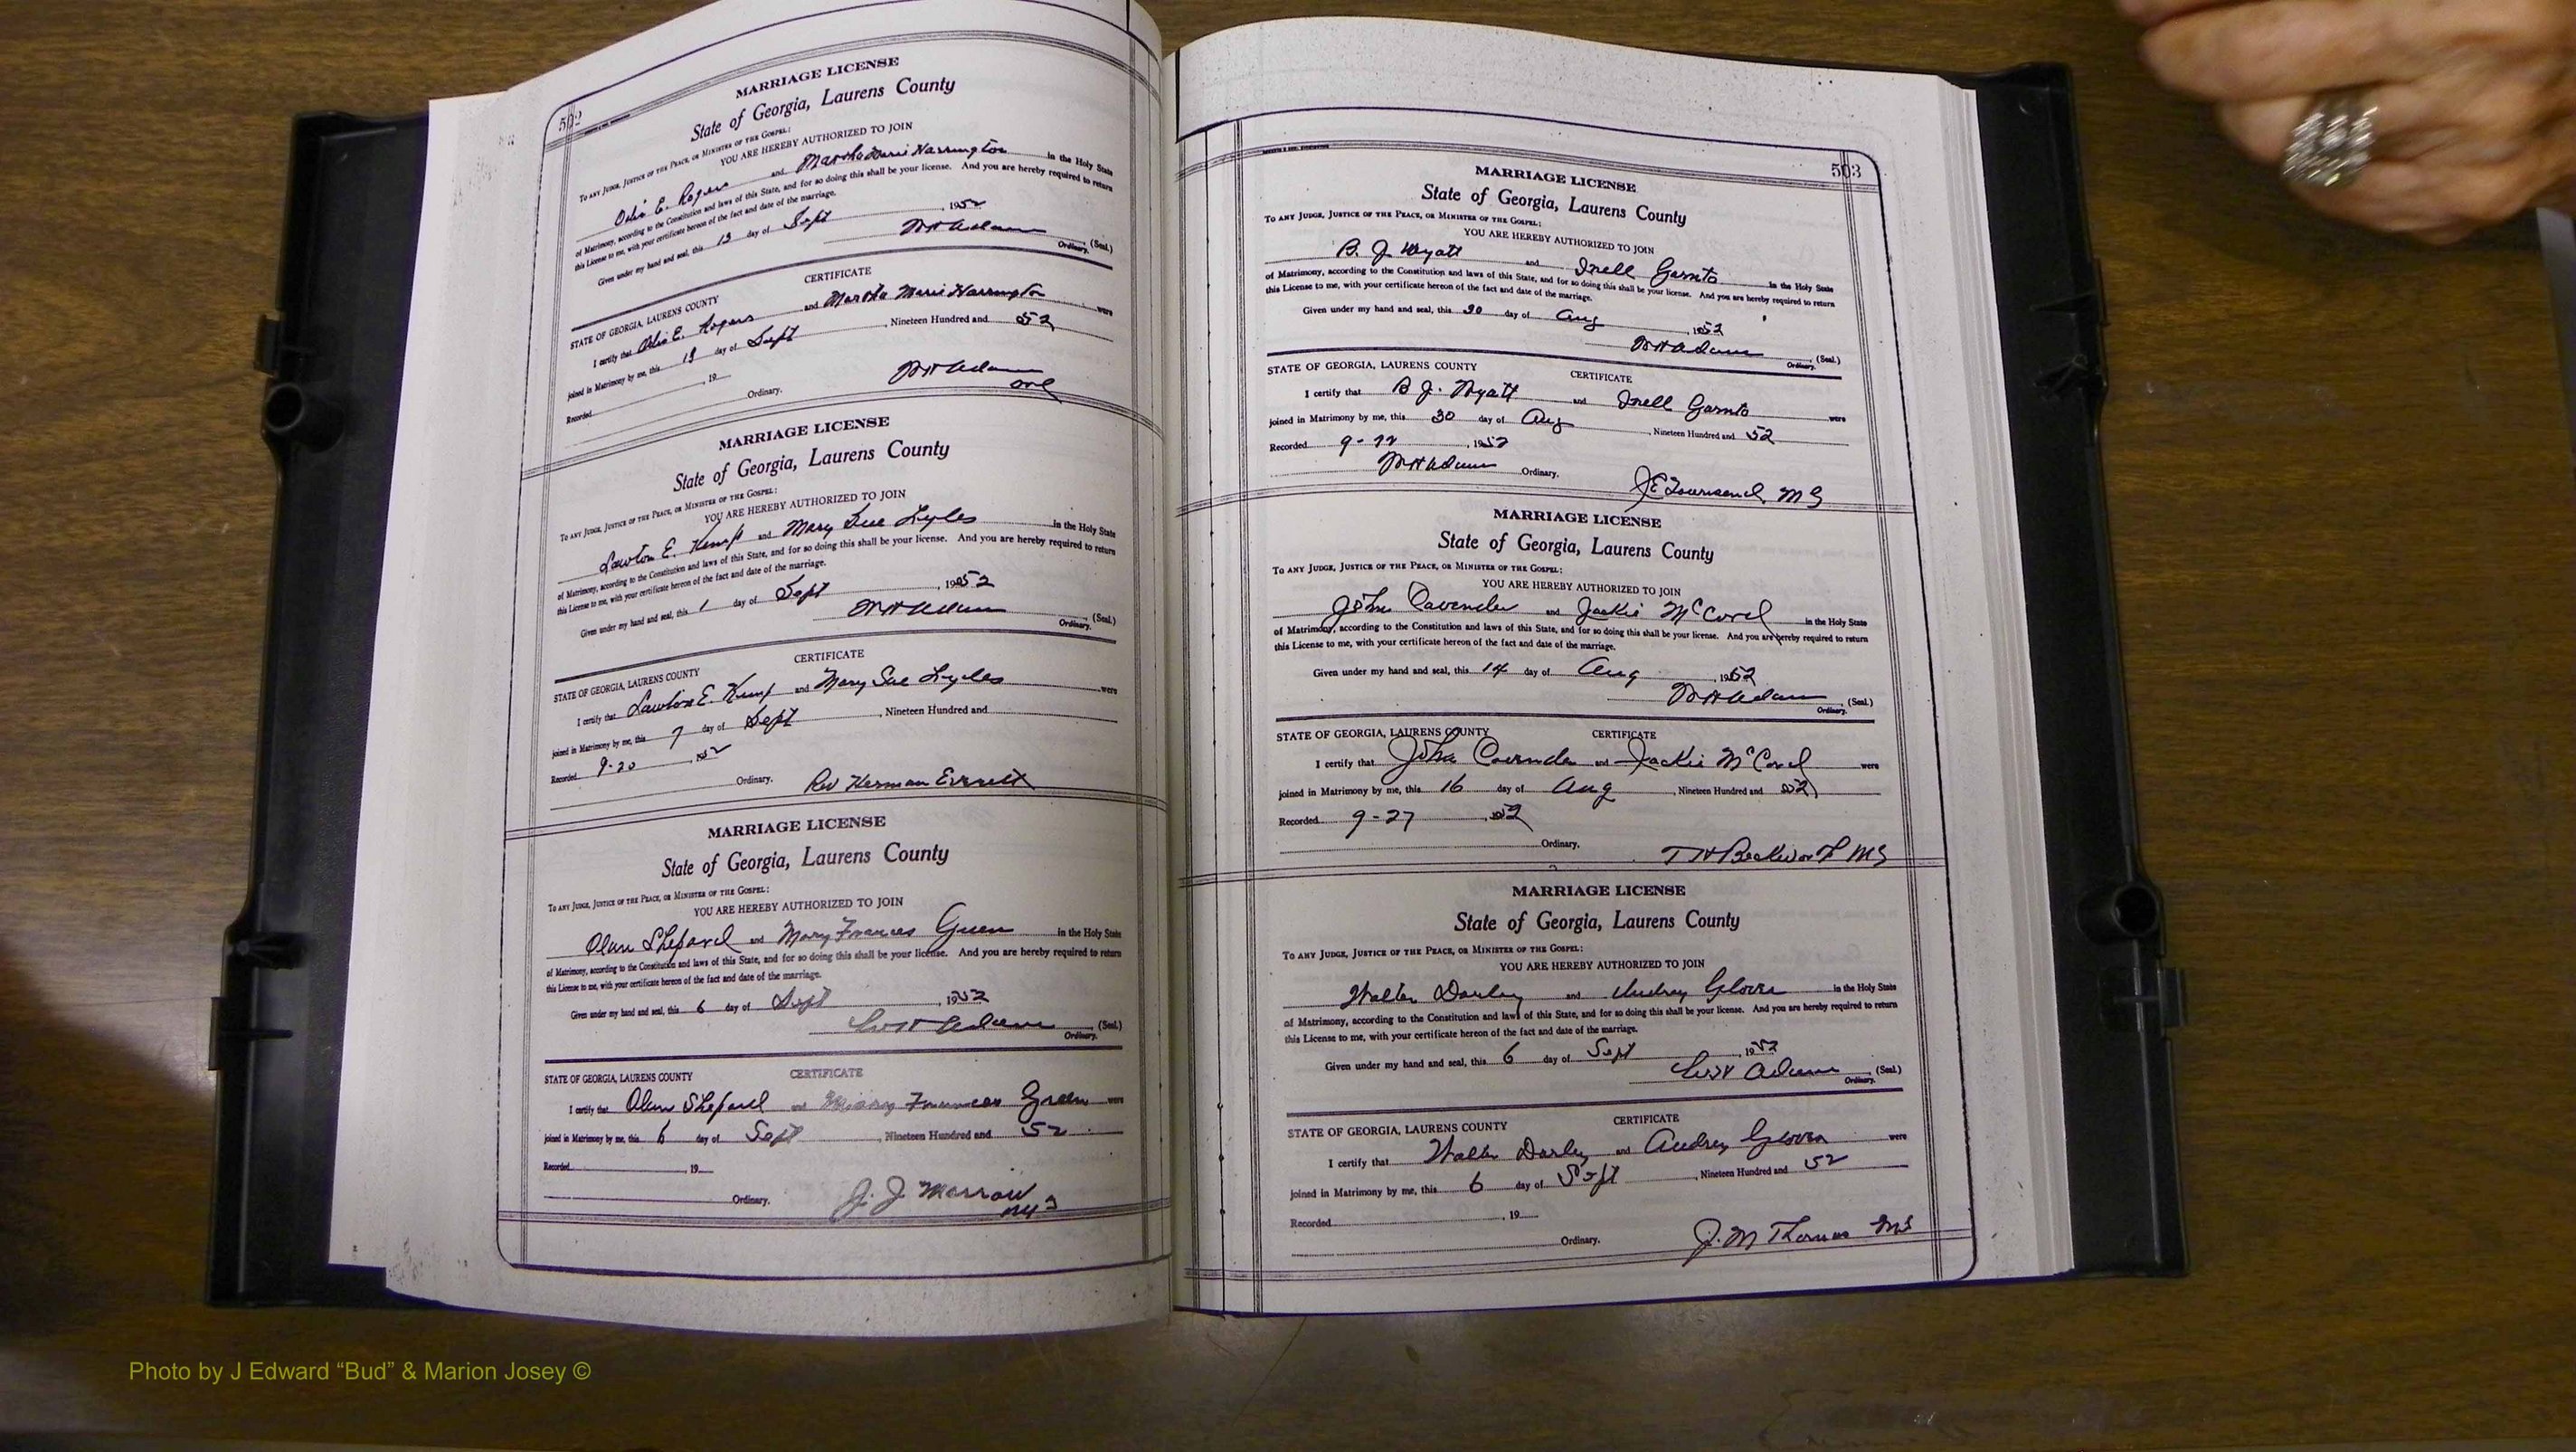 502
MARRIAGE LICENSE
State of Georgia, Laurens County
To any Judge, Justice of the Peace, or Minister of the Gospel:
YOU ARE HEREBY AUTHORIZED TO JOIN
E. Rogers and Martha Marie Harrington in the Holy State
of Matrimony, according to the Constitution and laws of this State, and for so doing this shall be your license. And you are hereby required to return
this License to me, with your certificate hereon of the fact and date of the marriage.
Given under my hand and seal, this 13 day of Sept, 1952
Adams (Seal.)
Ordinary.
CERTIFICATE
STATE OF GEORGIA, LAURENS COUNTY
I certify that E. Rogers and Martha Marie Harrington were
joined in Matrimony by me, this 13 day of Sept, Nineteen Hundred and 52
Recorded , 19
Adams
Ordinary.
Ord
MARRIAGE LICENSE
State of Georgia, Laurens County
To any Judge, Justice of the Peace, or Minister of the Gospel:
YOU ARE HEREBY AUTHORIZED TO JOIN
Lawton E. Kemp and Mary Sue Lyles in the Holy State
of Matrimony, according to the Constitution and laws of this State, and for so doing this shall be your license. And you are hereby required to return
this License to me, with your certificate hereon of the fact and date of the marriage.
Given under my hand and seal, this 1 day of Sept, 1952
Adams (Seal.)
Ordinary.
CERTIFICATE
STATE OF GEORGIA, LAURENS COUNTY
I certify that Lawton E. Kemp and Mary Sue Lyles were
joined in Matrimony by me, this 7 day of Sept, Nineteen Hundred and
Recorded 9-20, 1952
Ordinary. Rev Herman Everett
MARRIAGE LICENSE
State of Georgia, Laurens County
To any Judge, Justice of the Peace, or Minister of the Gospel:
YOU ARE HEREBY AUTHORIZED TO JOIN
Olan Shepard and Mary Frances Green in the Holy State
of Matrimony, according to the Constitution and laws of this State, and for so doing this shall be your license. And you are hereby required to return
this License to me, with your certificate hereon of the fact and date of the marriage.
Given under my hand and seal, this 6 day of Sept, 1952
Adams (Seal.)
Ordinary.
CERTIFICATE
STATE OF GEORGIA, LAURENS COUNTY
I certify that Olan Shepard and Mary Frances Green were
joined in Matrimony by me, this 6 day of Sept, Nineteen Hundred and 52
Recorded , 19
Ordinary. J. J. Morrow
MG
503
MARRIAGE LICENSE
State of Georgia, Laurens County
To any Judge, Justice of the Peace, or Minister of the Gospel:
YOU ARE HEREBY AUTHORIZED TO JOIN
B. J. Wyatt and Inell Garnto in the Holy State
of Matrimony, according to the Constitution and laws of this State, and for so doing this shall be your license. And you are hereby required to return
this License to me, with your certificate hereon of the fact and date of the marriage.
Given under my hand and seal, this 30 day of Aug, 1952
Adams (Seal.)
Ordinary.
CERTIFICATE
STATE OF GEORGIA, LAURENS COUNTY
I certify that B J. Wyatt and Inell Garnto were
joined in Matrimony by me, this 30 day of Aug, Nineteen Hundred and 52
Recorded 9-22, 1952
Adams Ordinary.
J E Townsend MG
MARRIAGE LICENSE
State of Georgia, Laurens County
To any Judge, Justice of the Peace, or Minister of the Gospel:
YOU ARE HEREBY AUTHORIZED TO JOIN
John Cavender and Jackie McCord in the Holy State
of Matrimony, according to the Constitution and laws of this State, and for so doing this shall be your license. And you are hereby required to return
this License to me, with your certificate hereon of the fact and date of the marriage.
Given under my hand and seal, this 14 day of Aug, 1952
Adams (Seal.)
Ordinary.
CERTIFICATE
STATE OF GEORGIA, LAURENS COUNTY
I certify that John Cavender and Jackie McCord were
joined in Matrimony by me, this 16 day of Aug, Nineteen Hundred and 52
Recorded 9-27, 52
Ordinary.
T H Beckworth MG
MARRIAGE LICENSE
State of Georgia, Laurens County
To any Judge, Justice of the Peace, or Minister of the Gospel:
YOU ARE HEREBY AUTHORIZED TO JOIN
Walter Darley and Audrey Glover in the Holy State
of Matrimony, according to the Constitution and laws of this State, and for so doing this shall be your license. And you are hereby required to return
this License to me, with your certificate hereon of the fact and date of the marriage.
Given under my hand and seal, this 6 day of Sept, 1952
Adams (Seal.)
Ordinary.
CERTIFICATE
STATE OF GEORGIA, LAURENS COUNTY
I certify that Walter Darley and Audrey Glover were
joined in Matrimony by me, this 6 day of Sept, Nineteen Hundred and 52
Recorded , 19
Ordinary. J. M Thomas MG
Photo by J Edward “Bud” & Marion Josey ©